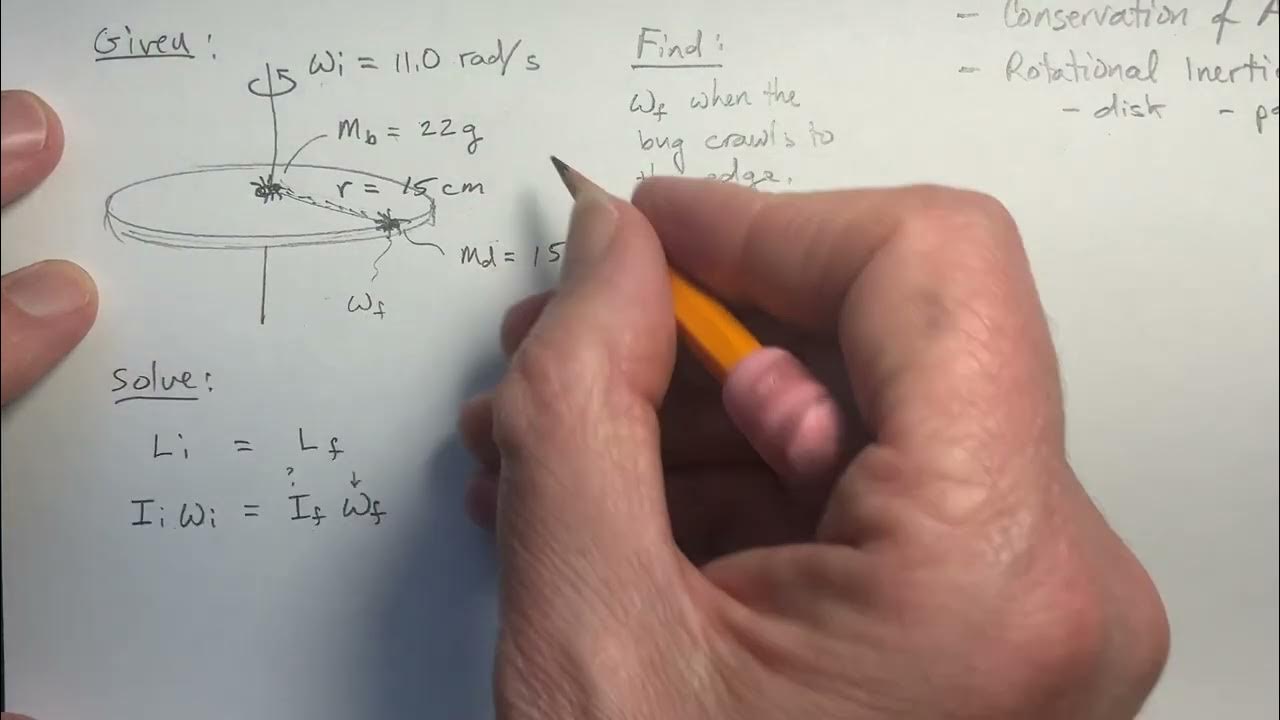 Given:
ωi = 11.0 rad/s
mb = 22g
r = 15 cm
md = 15
ωf
Find:
ωf when the
bug crawls to
edge.
- Conservation of
- Rotational
- disk -
Solve:
Li = Lf
?
Ii ωi = If ωf